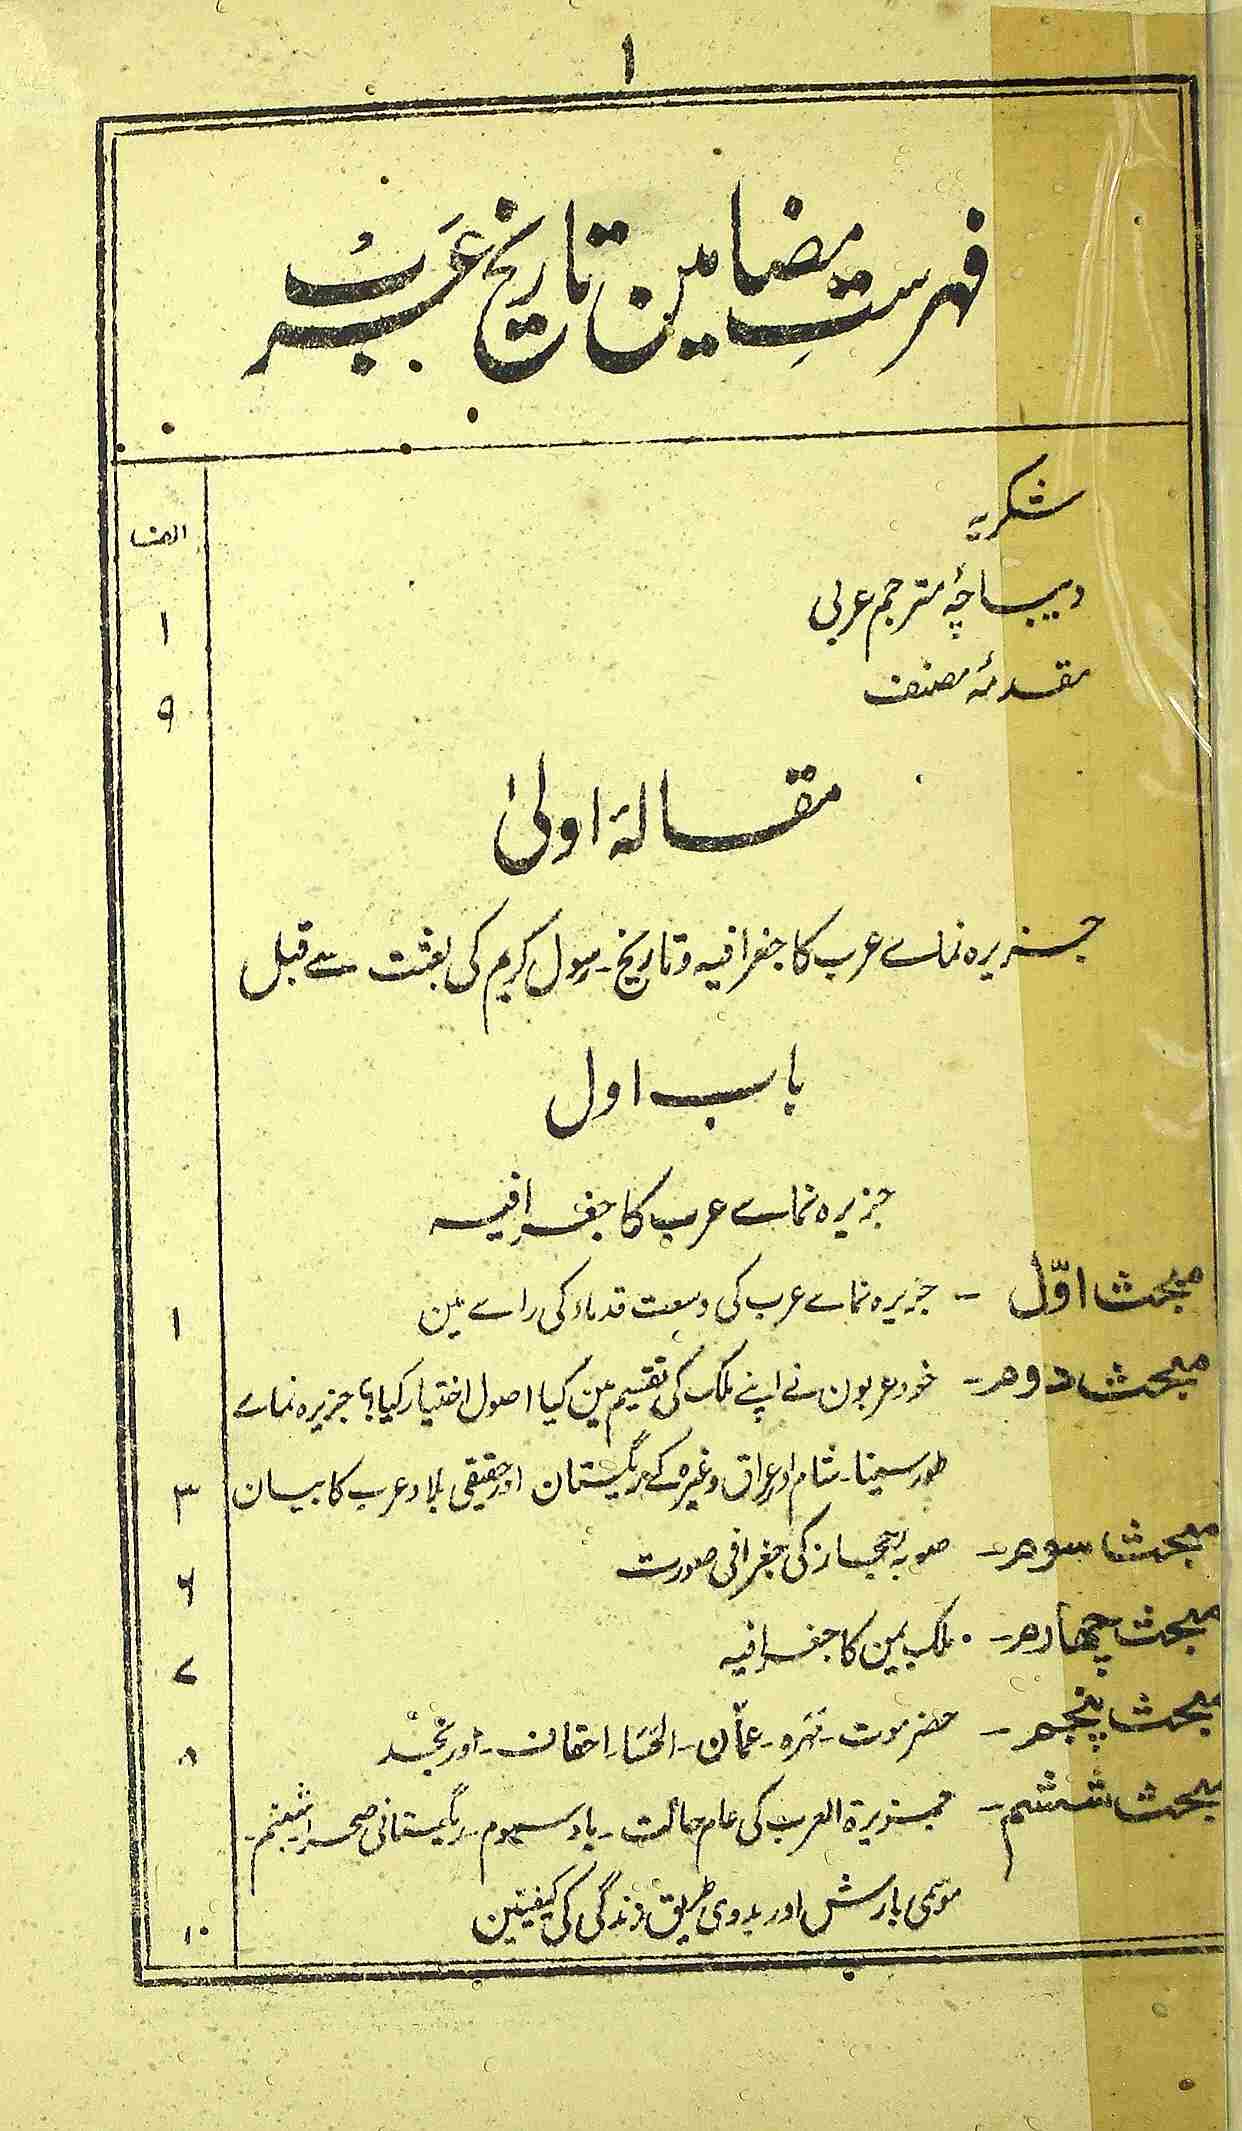 ۱
فہرستِ مضامین تاریخ عَرَبْ
شکریہ
الف
دیباچۂ مترجم عربی
۱
مقدمۂ مصنف
۹
مقالۂ اولیٰ
جزیرہ نماے عرب کا جغرافیہ و تاریخ۔ رسول کریم کی بعثت سے قبل
باب اول
جزیرہ نماے عرب کا جغرافیہ
مبحث اوّل – جزیرہ نماے عرب کی وسعت قدماء کی راے مین ۱
مبحث دوم – خود عربون نے اپنے ملک کی تقسیم مین کیا اصول اختیار کیا؟ جزیرہ نماے
طور سینا۔ شام اور عراق وغیرہ کے ریگستان اور حقیقی بلاد عرب کا بیان ۳
مبحث سوم – صوبہ حجاز کی جغرافی صورت ۶
مبحث چہارم – ملک یمن کا جغرافیہ ۷
مبحث پنجم – حضرموت۔ مہرہ۔ عمّان۔ الحَسَا۔ احقاف۔ اور نجد ۸
مبحث ششم – جزیرۃ العرب کی عام حالت۔ باد سموم۔ ریگستانی صحرا۔ شبنم۔
موسمی بارش اور بدوی طریق زندگی کی کیفیتین ۱۰